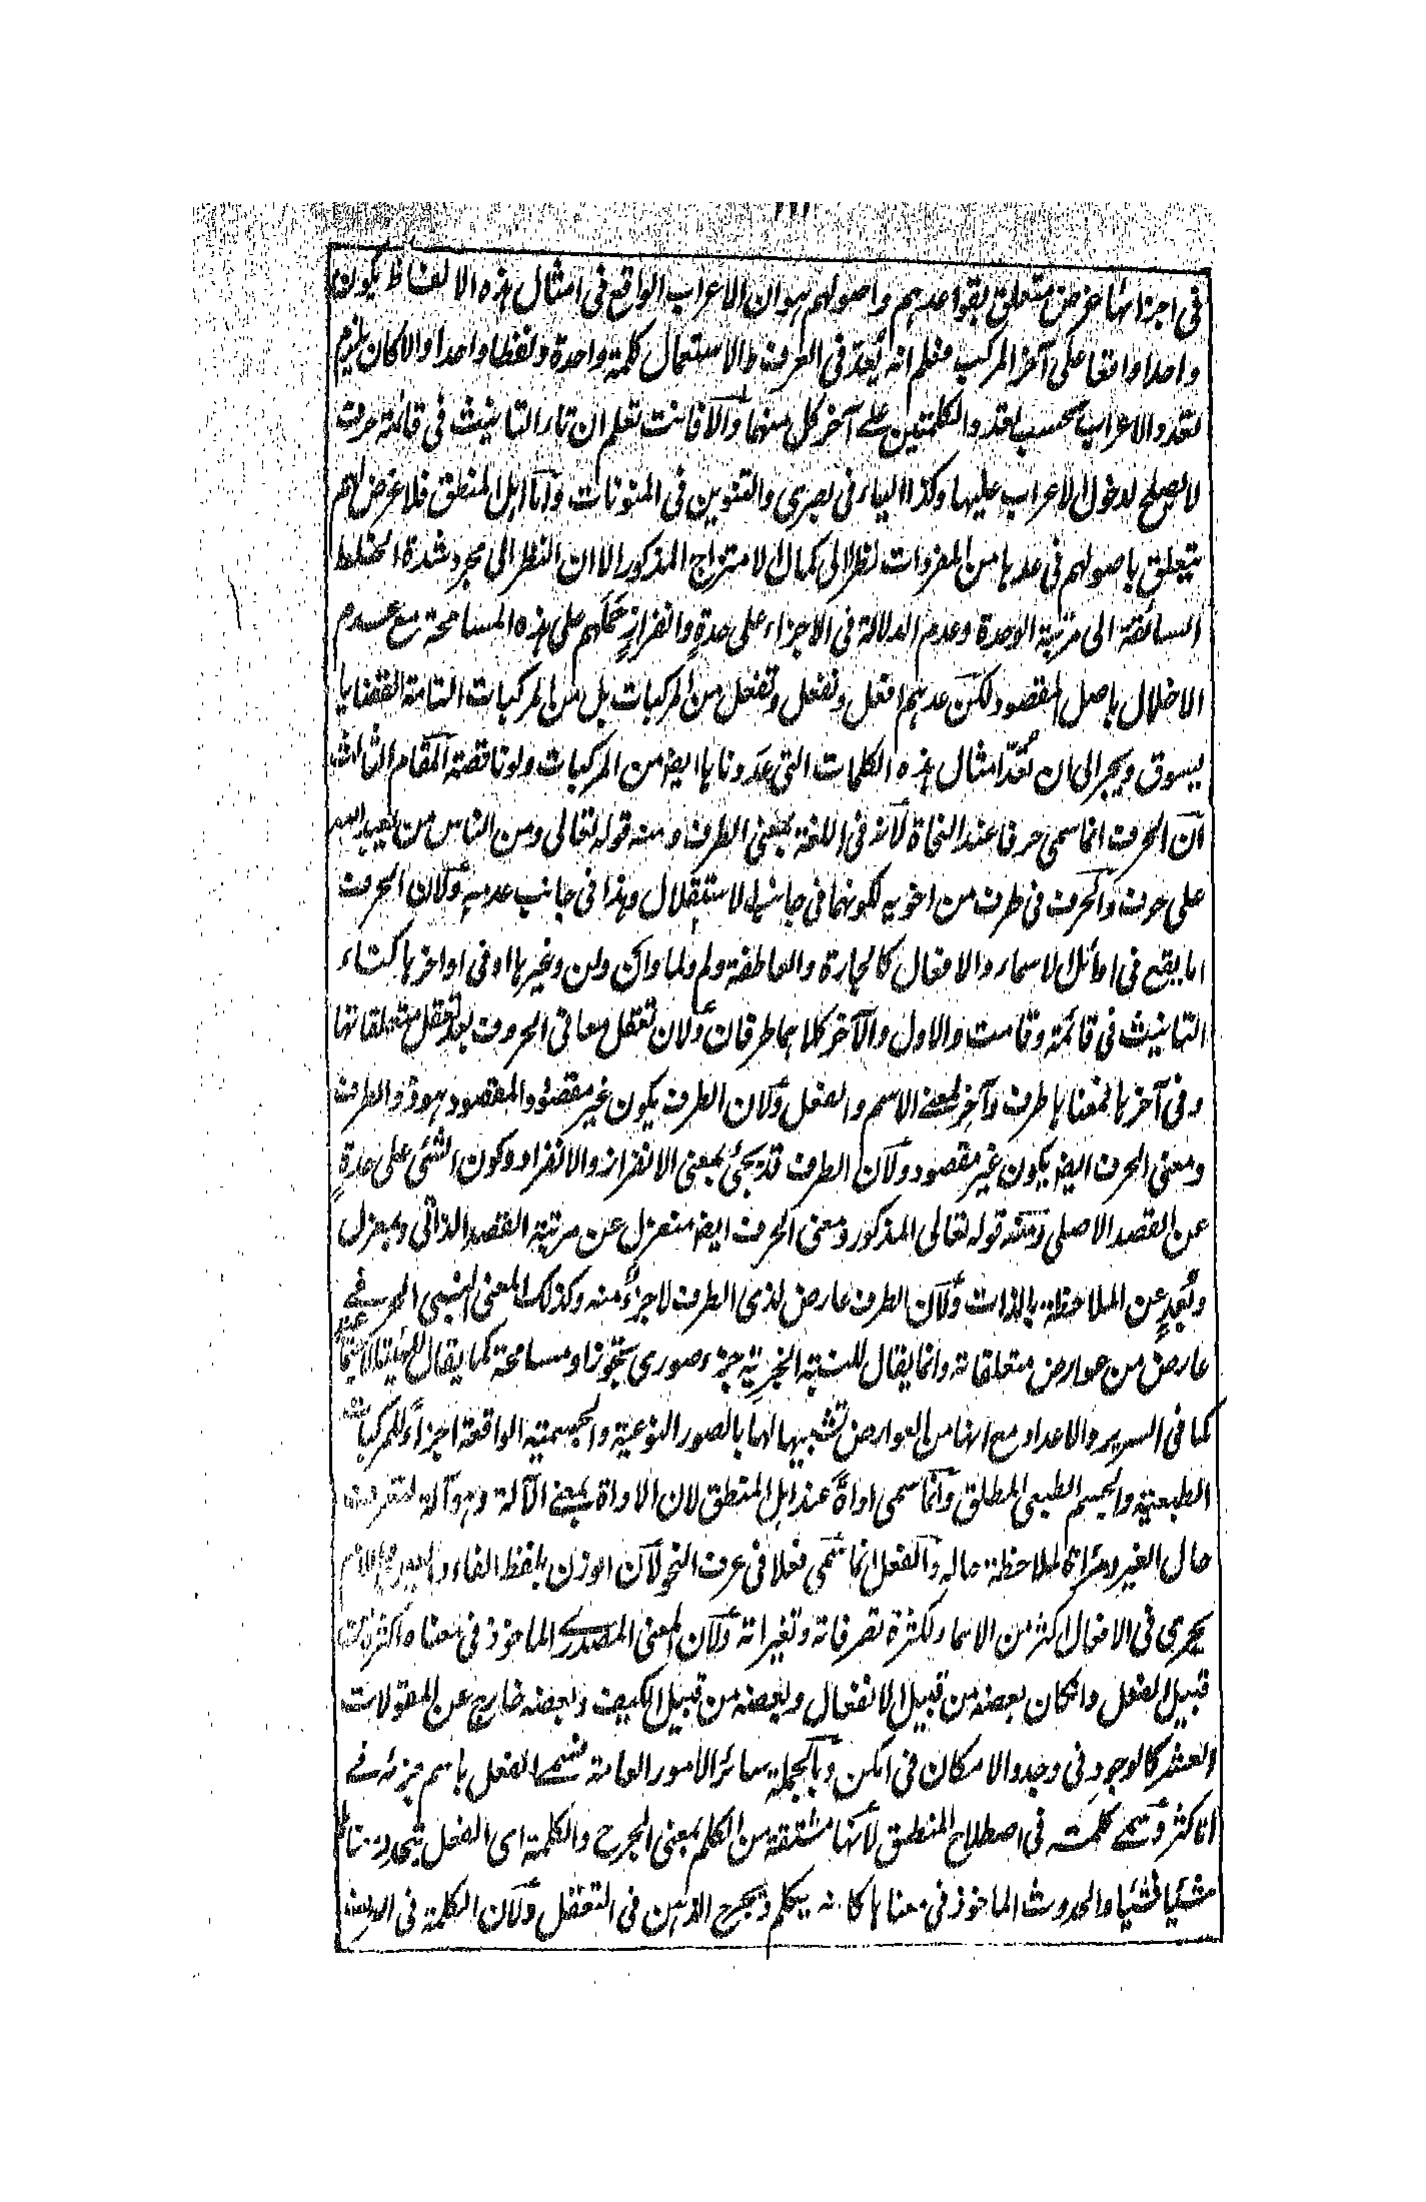 فى اجزائها غرض متعلق بقواعدهم واصولهم هو ان الاعراب الواقع فى امثال هذه الالفاظ يكون
واحدا واقعا على آخر المركب فعلم انه يُعدّ فى العرف والاستعمال كلمة واحدة ولفظا واحدا والا كان يلزم
تعدد الاعراب بحسب تعدد الكلمتين على آخر كل منهما والا فانت تعلم ان تاء التانيث فى قائمة حرف
لا يصلح لدخول الاعراب عليها وكذا الياء فى بصرى والتنوين فى المنونات واما اهل المنطق فلا غرض لهم
يتعلق باصولهم فى عدها من المفردات نظرا الى كمال الامتزاج المذكور الا ان النظر الى مجرد شدة الخلط
السائقة الى مرتبة الوحدة وعدم الدلالة فى الاجزاء على حدةٍ وانفرازٍ حملهم على هذه المسامحة مع عدم
الاخلال باصل المقصود لكن عدهم افعل ونفعل وتفعل من المركبات بل من المركبات التامة القضايا
يسوق ويجر الى ان نُعدّ امثال هذه الكلمات التى عددناها ايضا من المركبات ولو ناقصة المقام الثالث
ان الحرف انما سمى حرفا عند النحاة لانه فى اللغة بمعنى الطرف ومنه قوله تعالى ومن الناس من يعبد الله
على حرف والحرف فى طرف من اخويه لكونهما فى جانب الاستقلال وهذا فى جانب عدمه ولان الحرف
اما يقع فى اوائل الاسماء والافعال كالجارة والعاطفة ولم ولما وان ولن وغيرها او فى اواخرها كتاء
التانيث فى قائمة وقامت والاول والآخر كلاهما طرفان ولان تعقل معانى الحروف بعد تعقل متعلقاتها
وفى آخرها فمعناها طرف وآخر لمعنى الاسم والفعل ولان الطرف يكون غير مقصود والمقصود هو ذو الطرف
ومعنى الحرف ايضا يكون غير مقصود ولان الطرف قد يجئ بمعنى الانفراز والانفراد وكون الشئ على حدةٍ
عن القصد الاصلى ومنه قوله تعالى المذكور ومعنى الحرف ايضا منعزل عن مرتبة القصد الذاتى وبمعزل
وبُعدٍ عن الملاحظة بالذات ولان الطرف عارض لذى الطرف لا جزءٌ منه وكذلك المعنى النسبى الحرفى
عارض من عوارض متعلقاته وانما يقال للنسبة الخبرية جزء صورى تجوزا ومسامحة كما يقال للهيئة الاجتماعية
كما فى السرير والاعداد مع انها من العوارض تشبيها لها بالصور النوعية والجسمية الواقعة اجزاءً للمركبات
الطبعية والجسم الطبعى المطلق وانما سمى اداةً عند اهل المنطق لان الاداة بمعنى الآلة وهو آلة لتعرف
حال الغير ومرآة لملاحظة حاله والفعل انما سمى فعلا فى عرف النحو لان الوزن بلفظ الفاء والعين واللام
يجرى فى الافعال اكثر من الاسماء ولكثرة تصرفاته وتغيراته ولان المعنى المصدرى الماخوذ فى معناه اكثره من
قبيل الفعل وان كان بعضه من قبيل الانفعال وبعضه من قبيل الكيف وبعضه خارج عن المقولات
العشر كالوجود فى وجد والامكان فى امكن وبالجملة سائر الامور العامة فسمى الفعل باسم جزئه فى
الاكثر وسمى كلمة فى اصطلاح المنطق لانها مشتقة من الكلم بمعنى الجرح والكلمة اى الفعل
شيئا فشيئا والحدوث الماخوذ فى معناها كانه يكلم ويجرح الذهن فى التعقل ولان الكلمة فى العرف